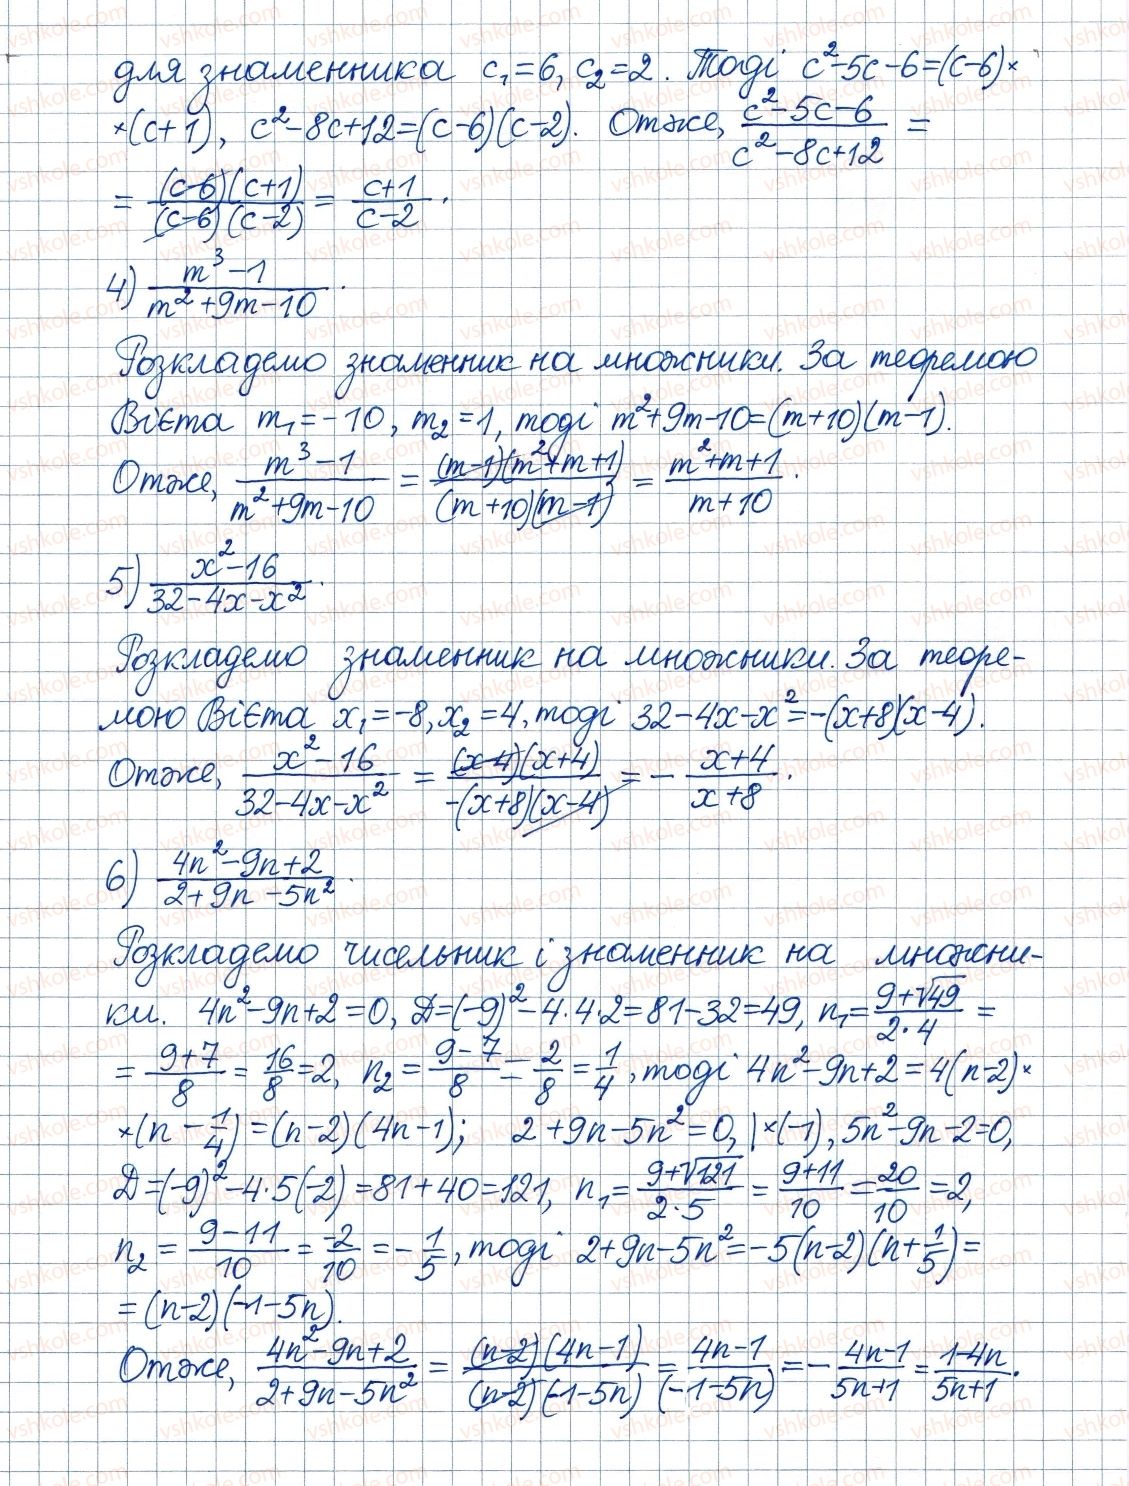 для знаменника c₁=6, c₂=2. Тоді c²-5c-6=(c-6)×
×(c+1), c²-8c+12=(c-6)(c-2). Отже, (c²-5c-6)/(c²-8c+12) =
= ((c-6)(c+1))/((c-6)(c-2)) = (c+1)/(c-2).
4) (m³-1)/(m²+9m-10).
Розкладемо знаменник на множники. За теоремою
Вієта m₁=-10, m₂=1, тоді m²+9m-10=(m+10)(m-1).
Отже, (m³-1)/(m²+9m-10) = ((m-1)(m²+m+1))/((m+10)(m-1)) = (m²+m+1)/(m+10).
5) (x²-16)/(32-4x-x²).
Розкладемо знаменник на множники. За теоре-
мою Вієта x₁=-8, x₂=4, тоді 32-4x-x²=-(x+8)(x-4).
Отже, (x²-16)/(32-4x-x²) = ((x-4)(x+4))/(-(x+8)(x-4)) = -(x+4)/(x+8).
6) (4n²-9n+2)/(2+9n-5n²).
Розкладемо чисельник і знаменник на множни-
ки. 4n²-9n+2=0, Д=(-9)²-4·4·2=81-32=49, n₁=(9+√49)/(2·4) =
= (9+7)/8 = 16/8 =2, n₂ = (9-7)/8 = 2/8 = 1/4, тоді 4n²-9n+2=4(n-2)×
×(n-1/4)=(n-2)(4n-1); 2+9n-5n²=0, |×(-1), 5n²-9n-2=0,
Д=(-9)²-4·5(-2)=81+40=121, n₁=(9+√121)/(2·5) = (9+11)/10 = 20/10 =2,
n₂ = (9-11)/10 = -2/10 = -1/5, тоді 2+9n-5n²=-5(n-2)(n+1/5)=
=(n-2)(-1-5n).
Отже, (4n²-9n+2)/(2+9n-5n²) = ((n-2)(4n-1))/((n-2)(-1-5n)) = (4n-1)/(-1-5n) = -(4n-1)/(5n+1) = (1-4n)/(5n+1).
vshkole.com